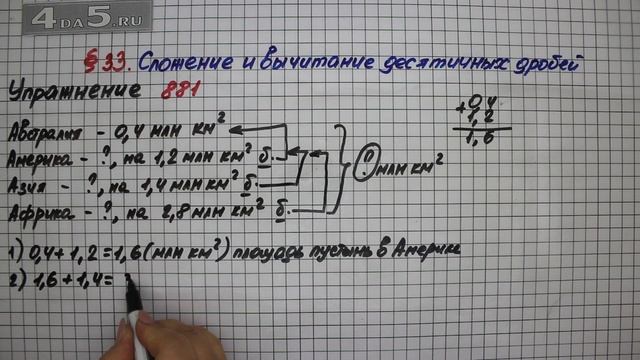 4DA5.RU
§33. Сложение и вычитание десятичных дробей
Упражнение 881
Австралия - 0,4 млн км²
Америка - ?, на 1,2 млн км² б.
Азия - ?, на 1,4 млн км² б.
Африка - ?, на 2,8 млн км² б.
? млн км²
+0,4
1,2
1,6
1) 0,4 + 1,2 = 1,6 (млн км²) площадь пустынь в Америке
2) 1,6 + 1,4 =